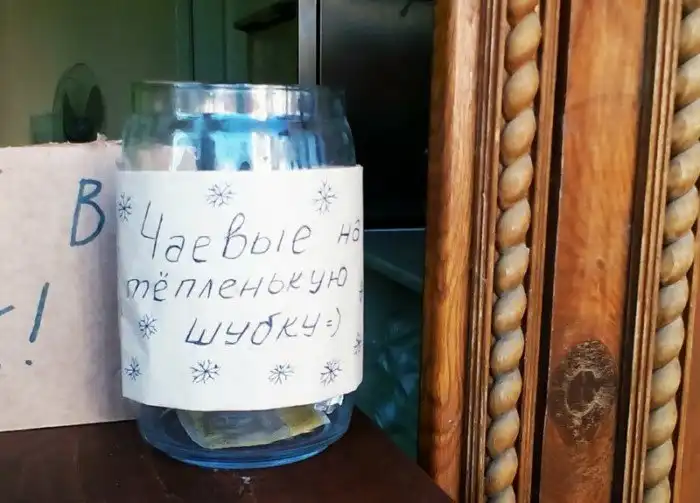 В
Чаевые на
тёпленькую
шубку=)
!